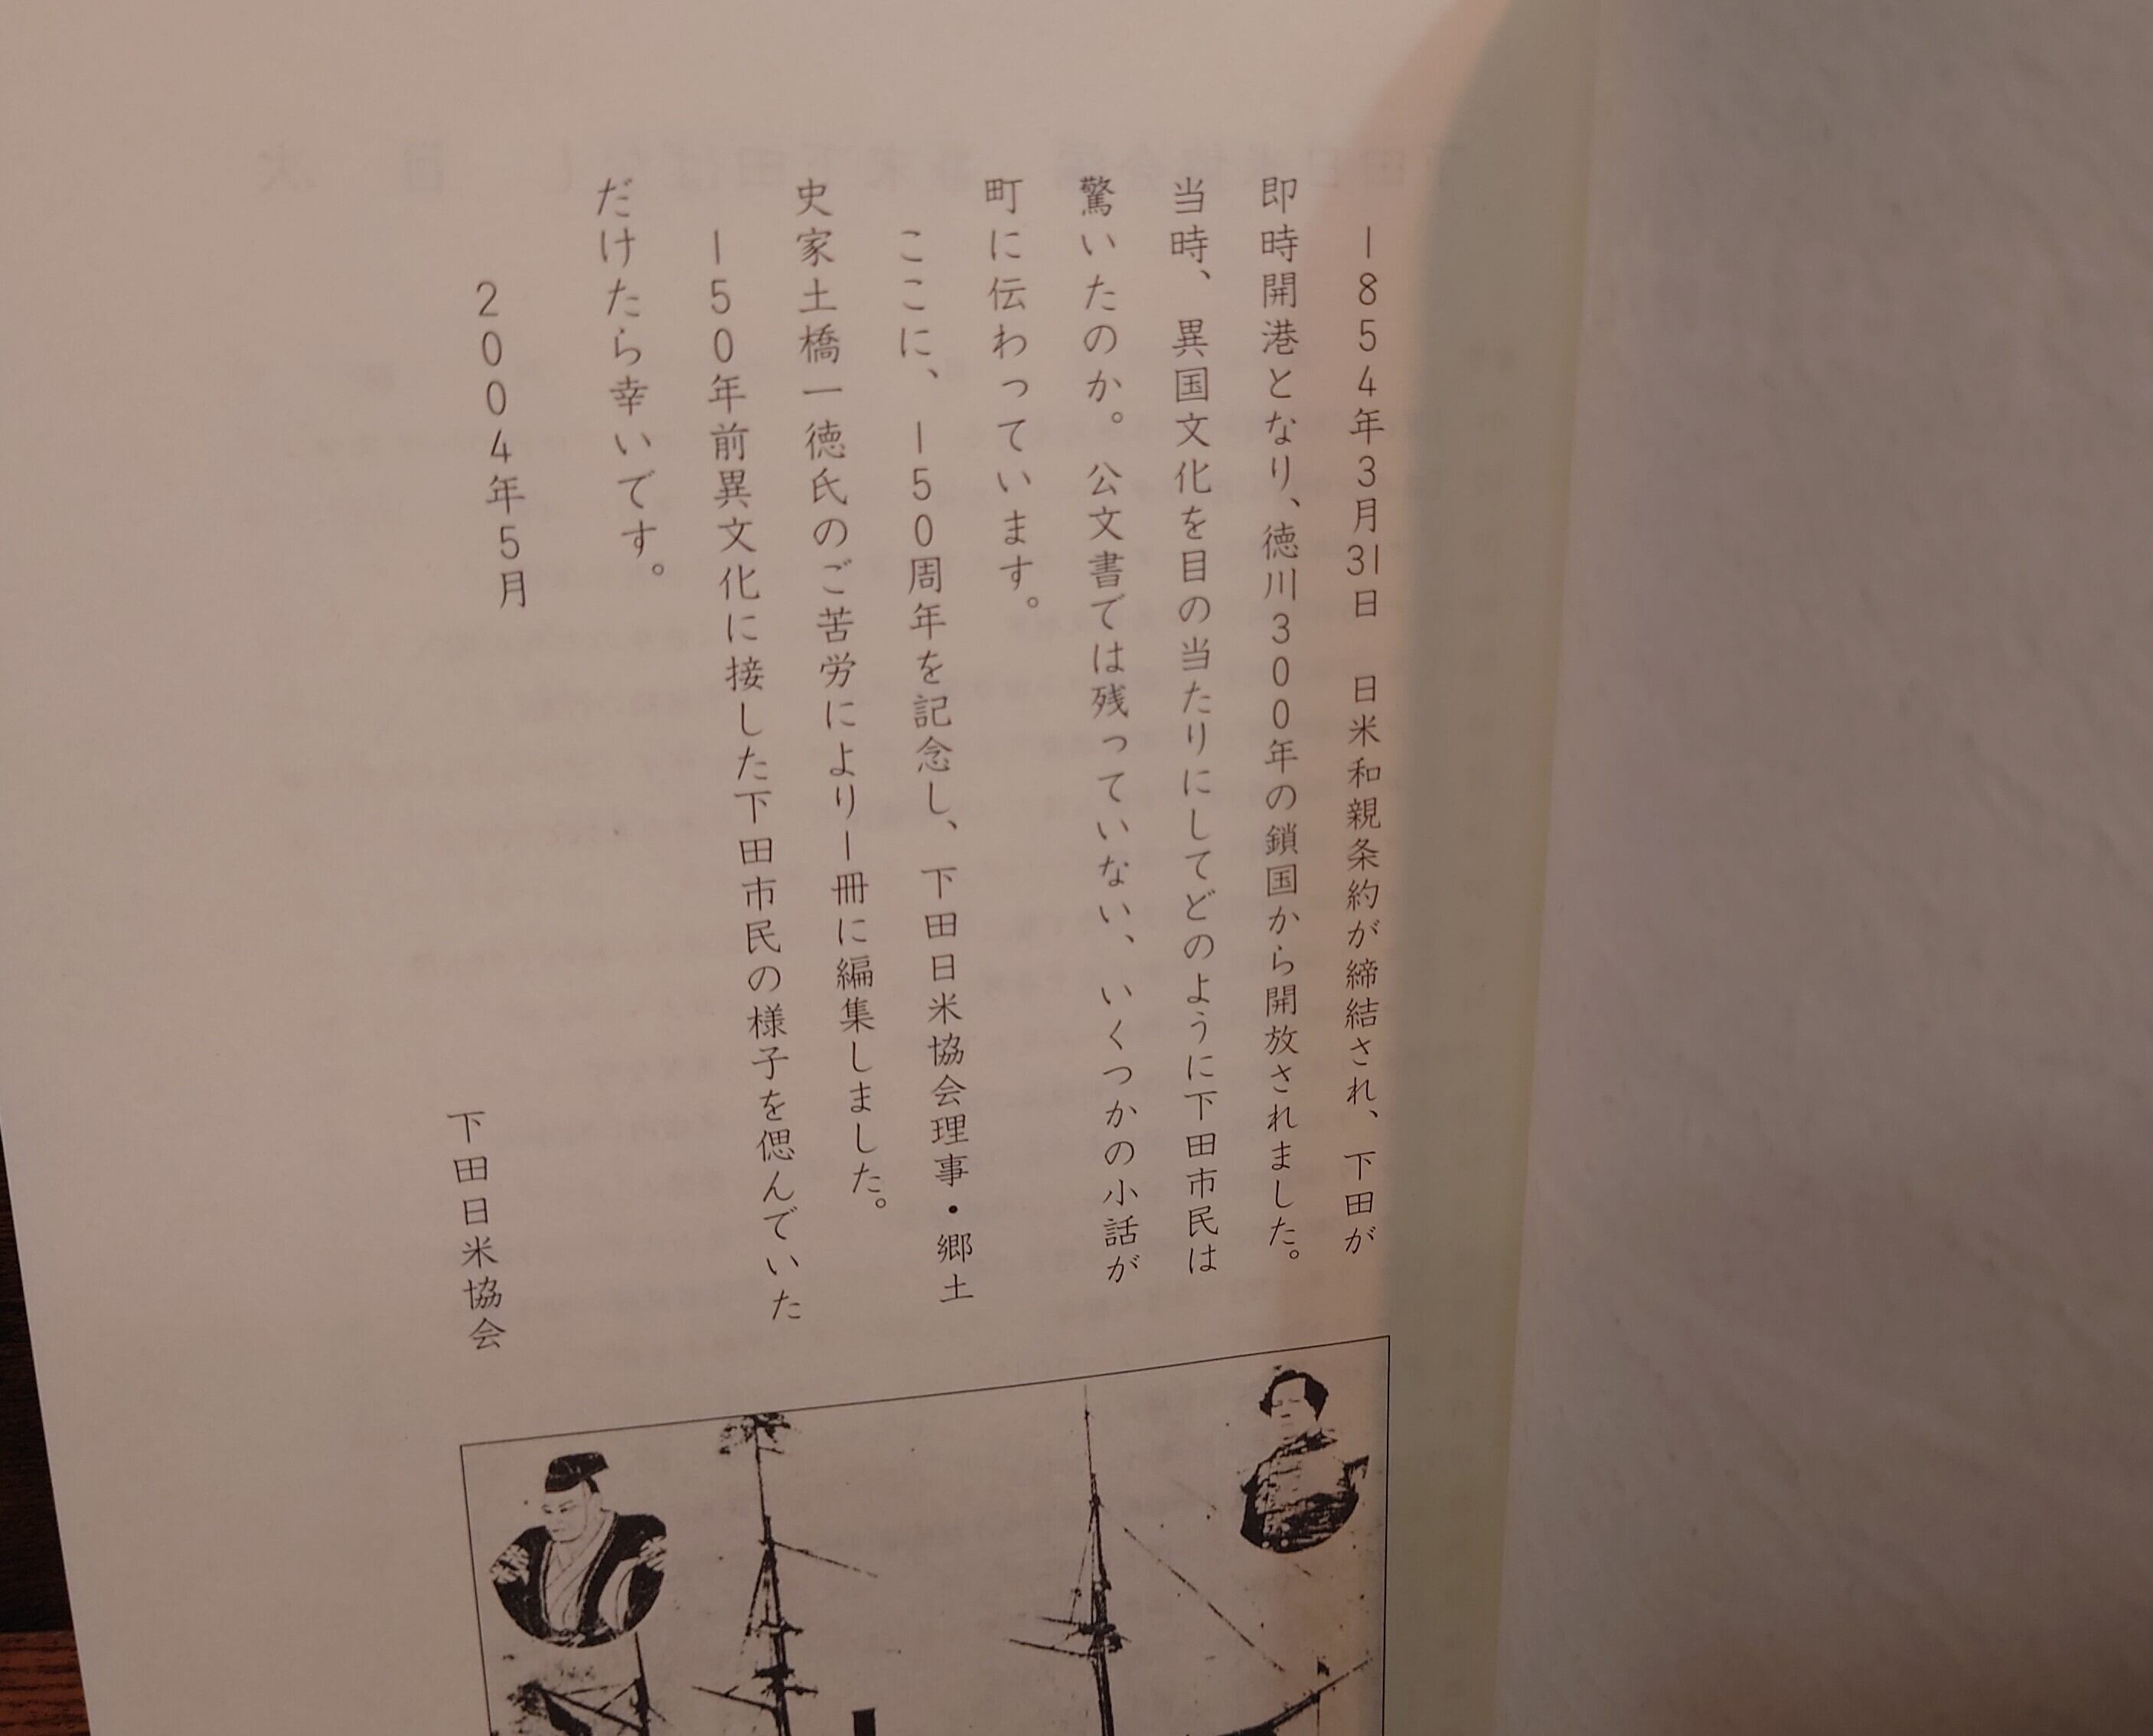 1854年3月31日　日米和親条約が締結され、下田が
即時開港となり、徳川300年の鎖国から開放されました。
当時、異国文化を目の当たりにしてどのように下田市民は
驚いたのか。公文書では残っていない、いくつかの小話が
町に伝わっています。
ここに、150周年を記念し、下田日米協会理事・郷土
史家土橋一徳氏のご苦労により一冊に編集しました。
150年前異文化に接した下田市民の様子を偲んでいた
だけたら幸いです。
2004年5月
下田日米協会